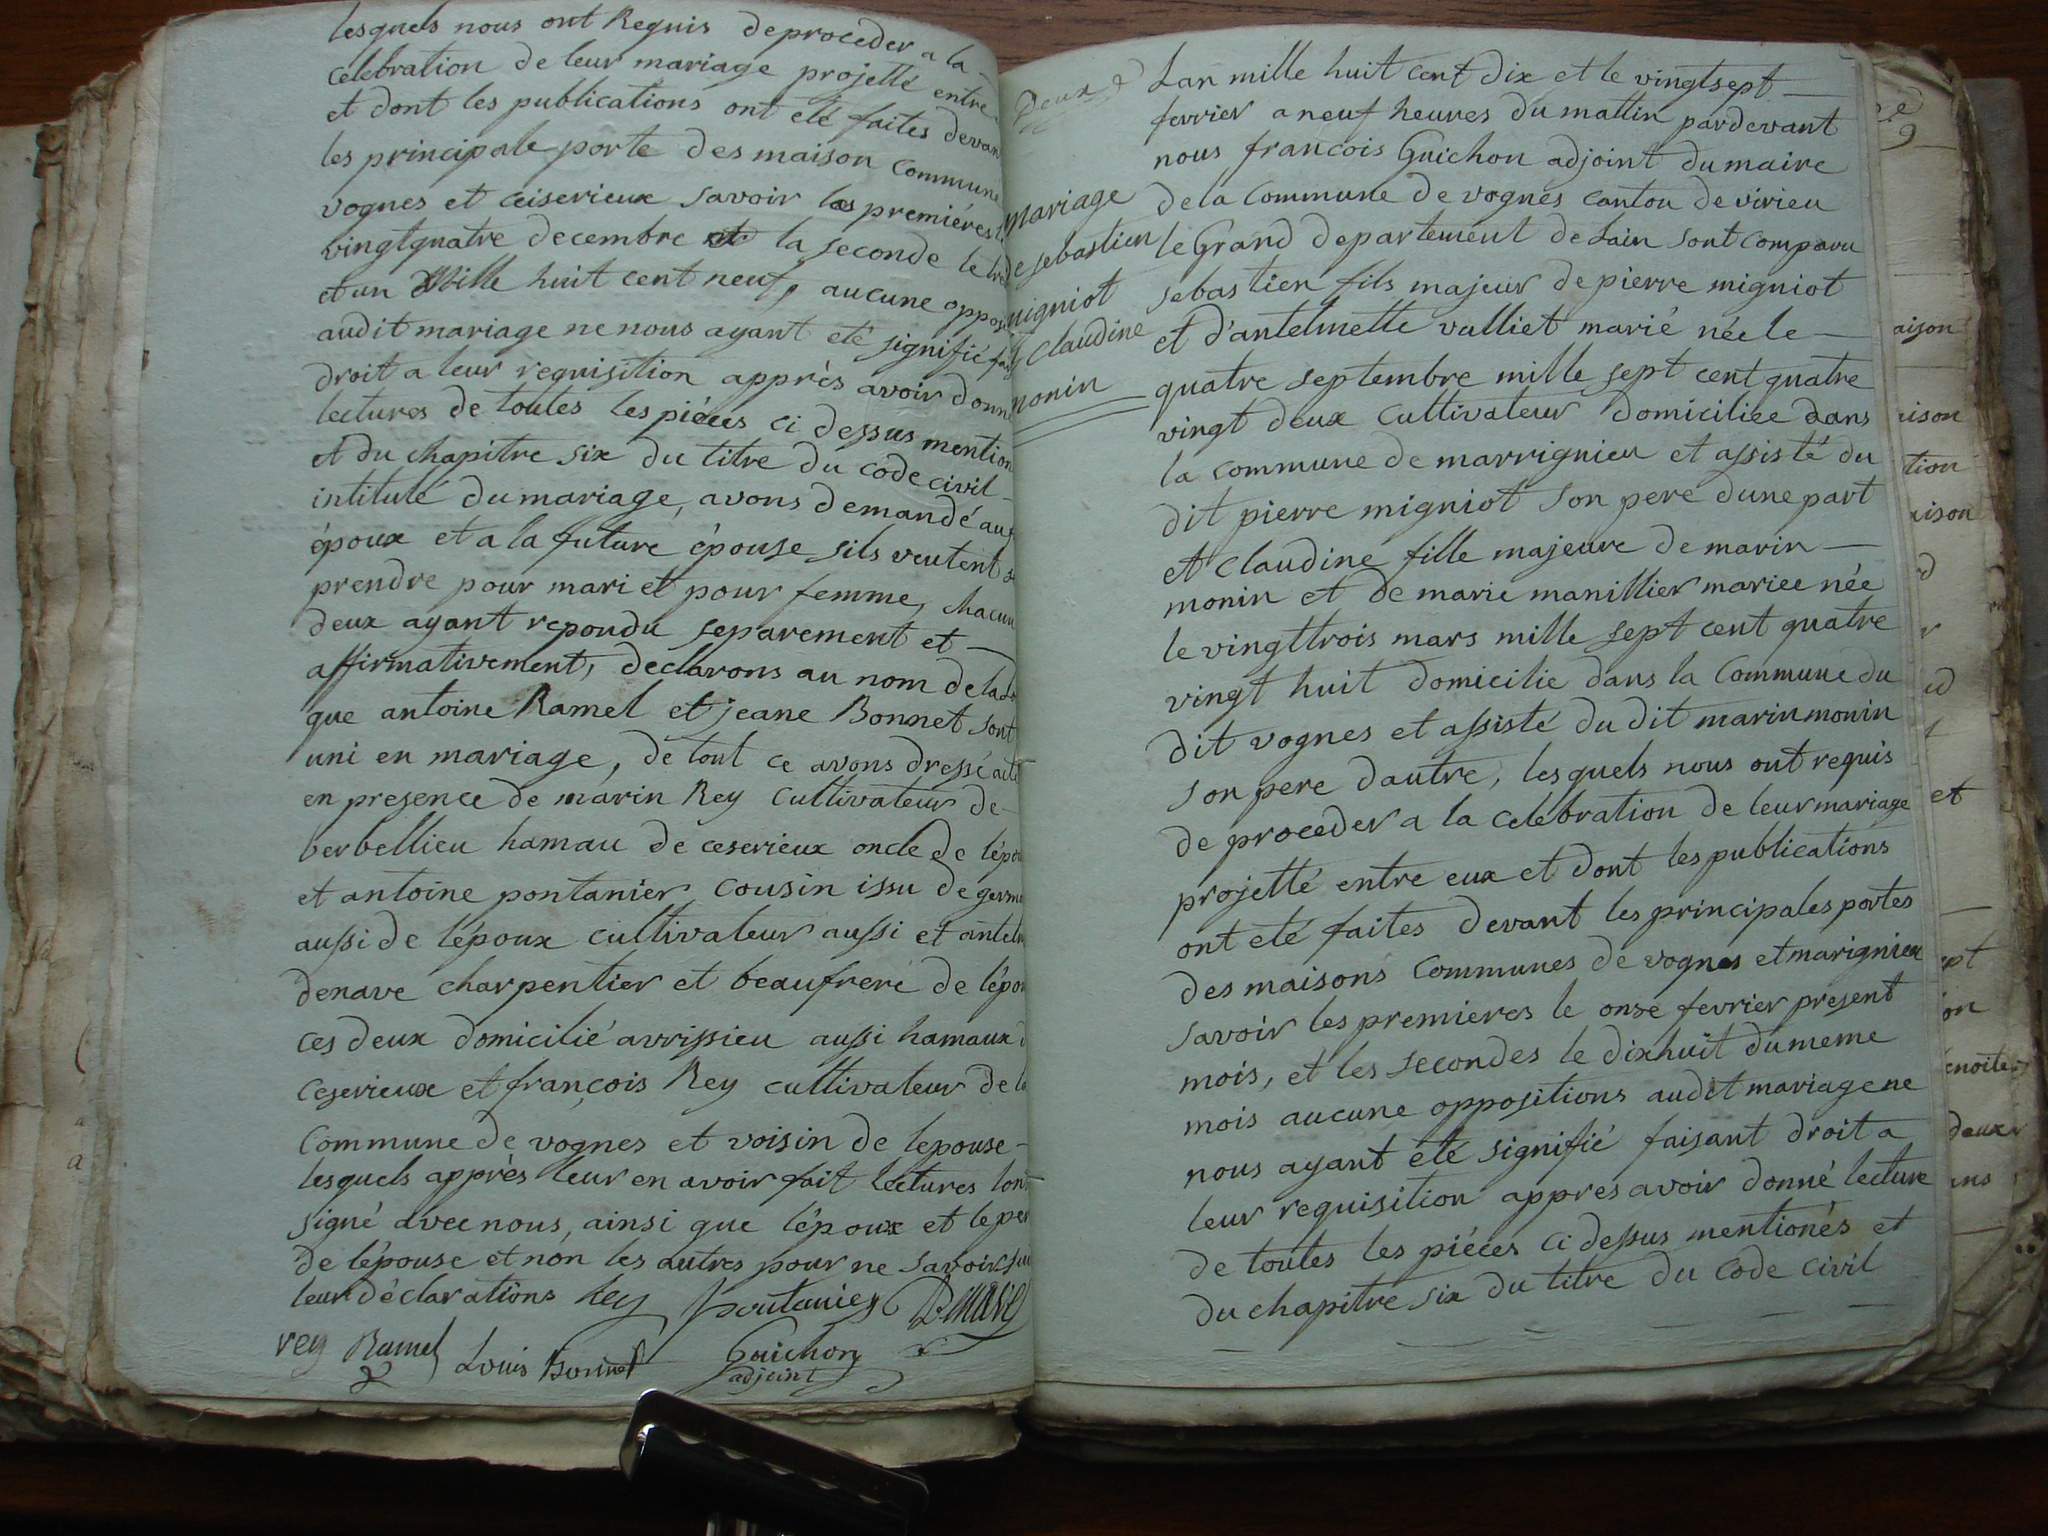 lesquels nous ont Requis deproceder a la
celebration de leur mariage projetté entre
et dont les publications ont eté faites devan
les principale porte des maison commune
vognes et ceiserieux savoir les premiéres
vingtquatre decembre et la seconde le
et un Mille huit cent neuf, aucune oppos
audit mariage ne nous ayant eté signifié
droit a leur requisition apprès avoir donn
lectures de toutes les piéces ci dessus mention
et du chapitre six du titre du code civil
intitulé du mariage, avons demandé au
époux et a la future épouse sils veutent
prendre pour mari et pour femme, chacun
deux ayant repondu separement et
affirmativement, declarons au nom de la
que antoine Ramel et jeane Bonnet sont
uni en mariage, de tout ce avons dressé acte
en presence de marin Rey cultivateur de
berbellieu hamau de ceserieux oncle de lépou
et antoine pontanier cousin issu de germ
aussi de lépoux cultivateur aussi et antelm
denave charpentier et beaufrere de lépou
ces deux domicilié avrissieu aussi hamaux d
ceserieux et françois Rey cultivateur de la
commune de vognes et voisin de lepouse
lesquels apprès leur en avoir fait lectures lont
signé avec nous, ainsi que lépoux et le per
de lépouse et non les autres pour ne savoir
leur déclarations Rey poutanier Denave
rey Ramel Louis Bonnet Guichon
adjoint
Deux
mariage
de sebastien
migniot
Claudine
monin
Lan mille huit cent dix et le vingtsept
fevrier a neuf heures du mattin pardevant
nous francois Guichon adjoint du maire
de la commune de vognes canton de virieu
le Grand departement de Lain sont comparu
sebastien fils majeur de pierre migniot
et d'antelmette valliet marié née le
quatre septembre mille sept cent quatre
vingt deux cultivateur domiciliee dans
la commune de marrignieu et assisté du
dit pierre migniot son pere dune part
et Claudine fille majeure de marin
monin et de marie manillier mariee née
le vingttrois mars mille sept cent quatre
vingt huit domicilie dans la Commune du
dit vognes et assisté du dit marin monin
son pere dautre, lesquels nous ont requis
de proceder a la celébration de leur mariage
projetté entre eux et dont les publications
ont eté faites devant les principales portes
des maisons communes de vognes et marignieu
savoir les premieres le onse fevrier present
mois, et les secondes le dixhuit du meme
mois aucune oppositions audit mariage ne
nous ayant été signifié faisant droit a
leur requisition appres avoir donné lecture
de toutes les piéces ci dessus mentionés et
du chapitre six du titre du code civil
aison
ison
tion
aison
et
on
deux